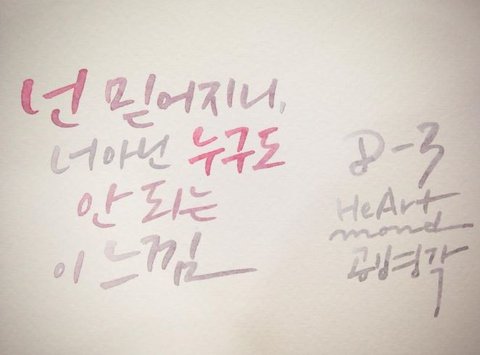 넌 믿어지니,
너 아닌 누구도
안 되는
이 느낌
D-3
HeArt
mond
공병각